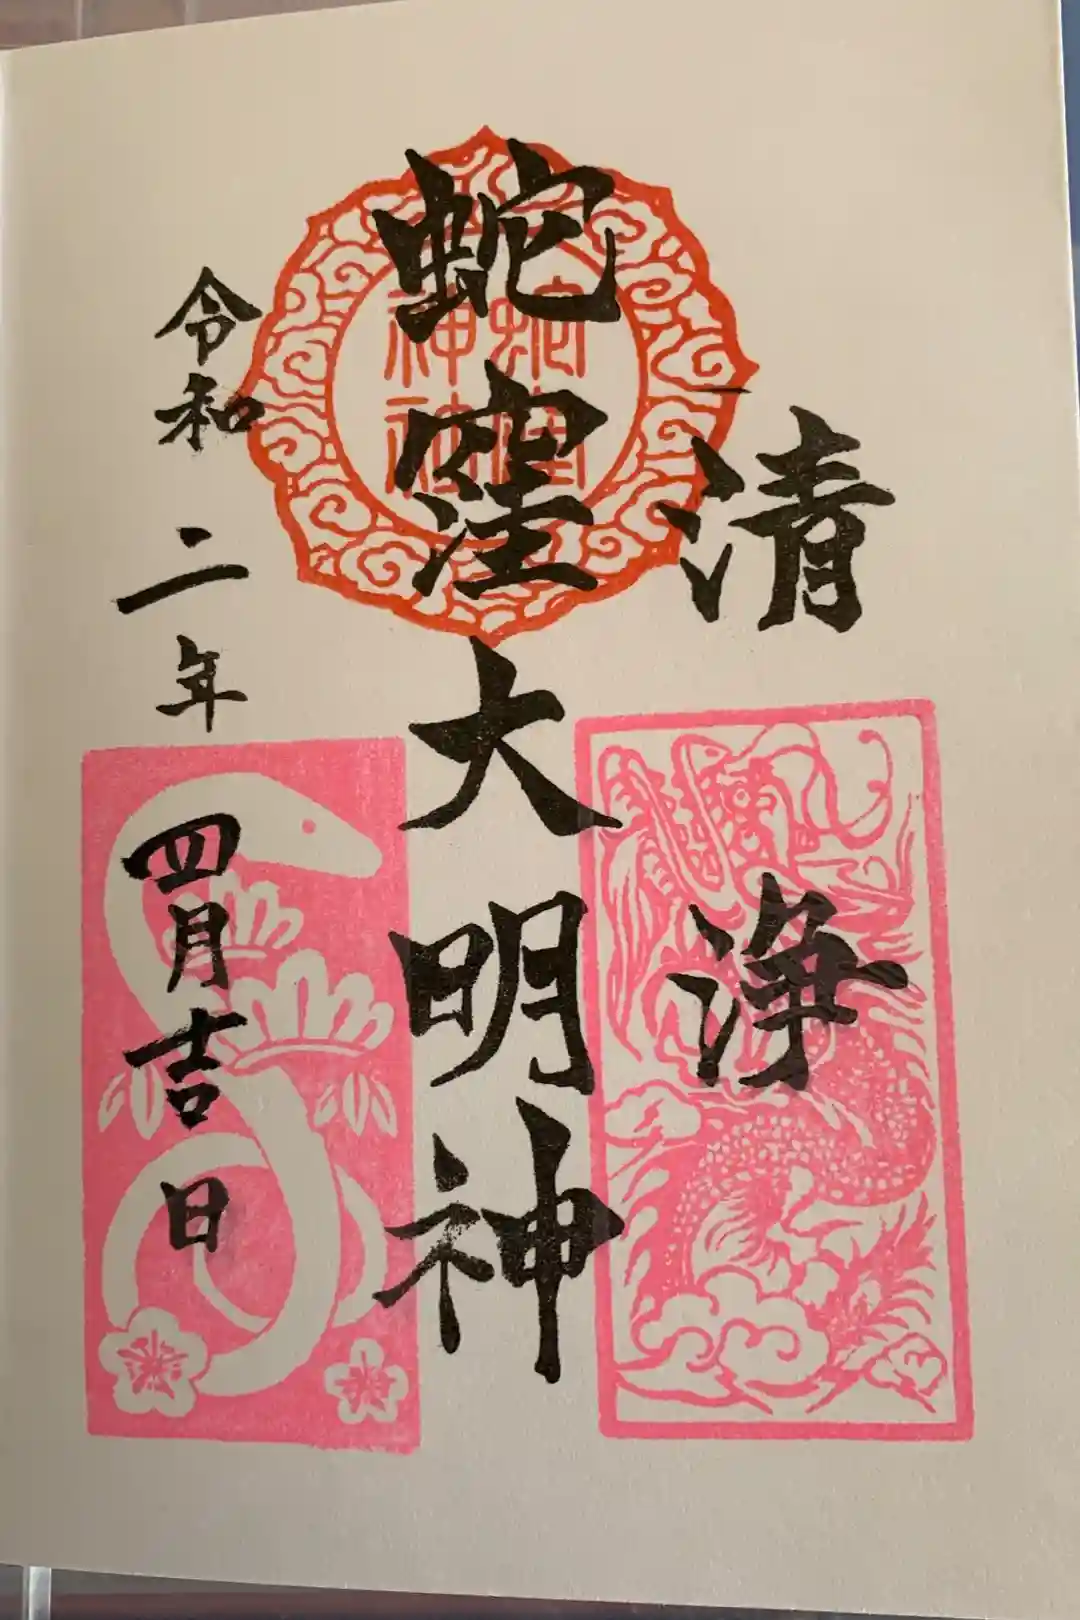 清浄
蛇窪大明神
蛇窪
神社
令和二年四月吉日